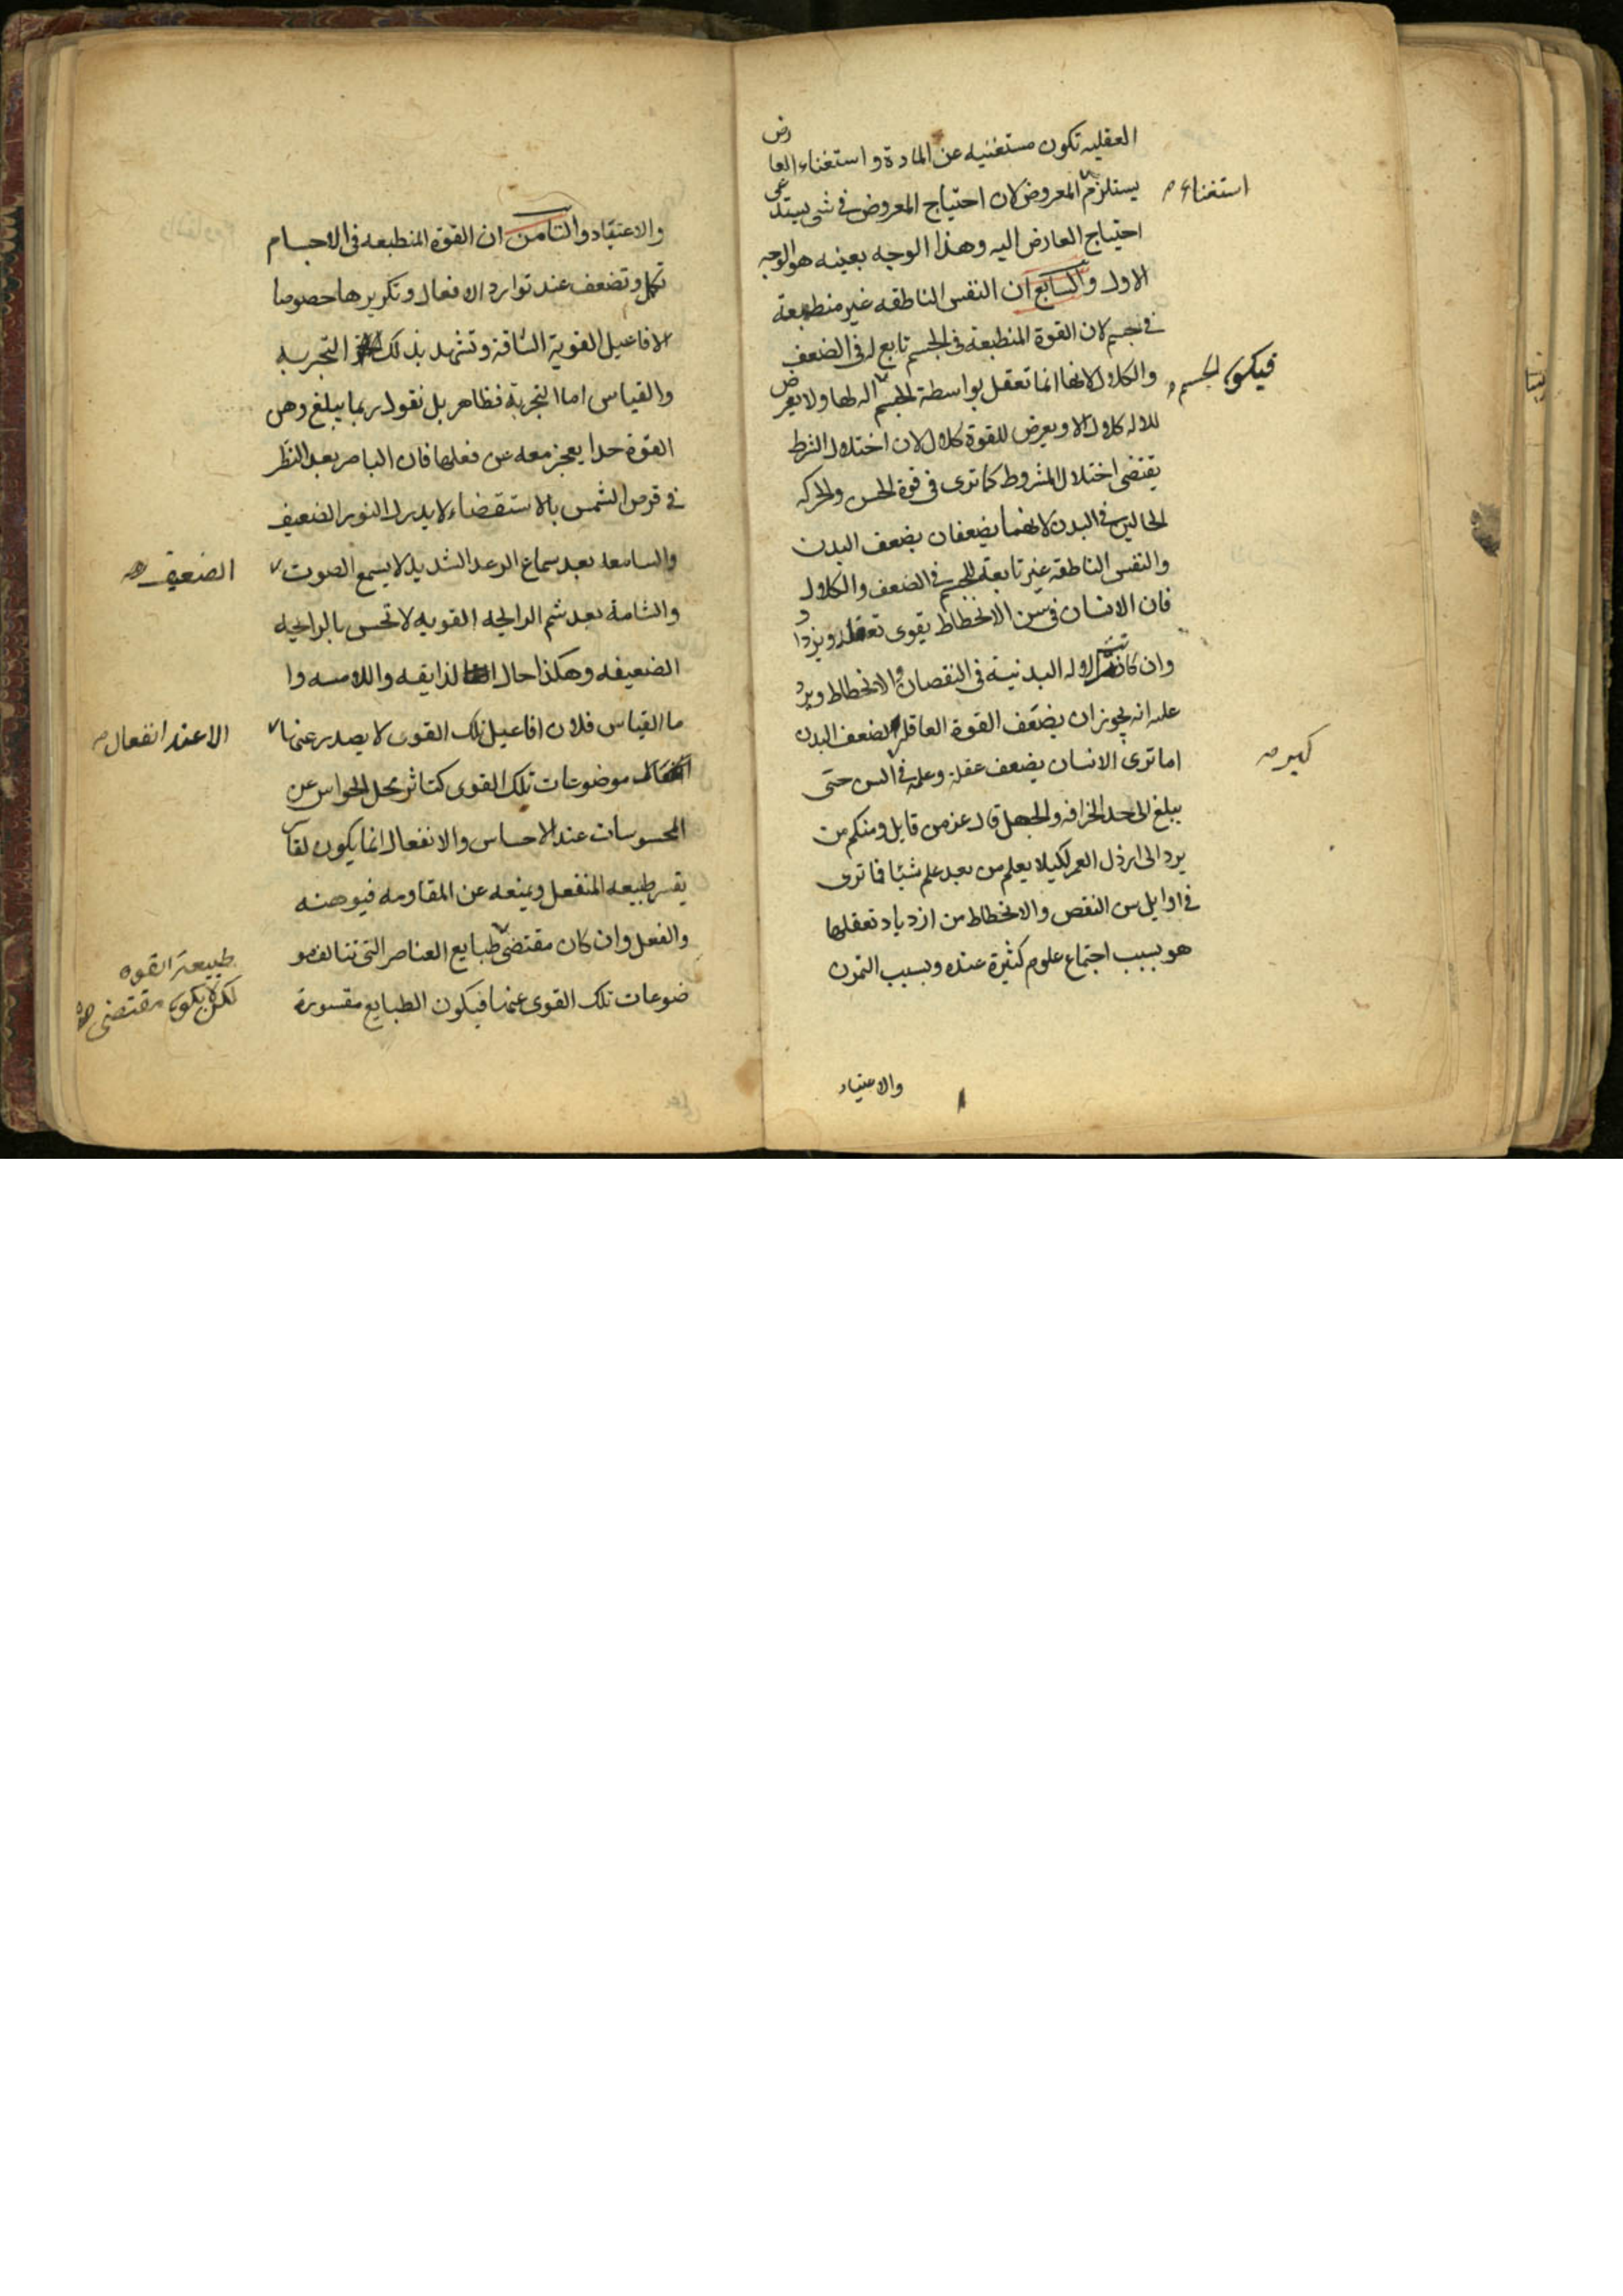 العقليه تكون مستغنيه عن المادة و استغناء العارض
يستلزم المعروض لان احتياج المعروض فى شى يستدعى
استغناء
احتياج العارض اليه وهذا الوجه بعينه هو الوجه
الاول والسابع ان النفس الناطقه غير منطبعة
فى جسم لان القوة المنطبعة فى الجسم تابع له فى الضعف
والكلال لانها انما تعقل بواسطة الجسم اله لها ولا يعرض
فيكون الجسم
للاله كلال الا ويعرض للقوة كلال لان اختلال الشرط
يقتضى اختلال المشروط كما ترى فى قوة الحس والحركه
الحالين فى البدن لانهما يضعفان بضعف البدن
والنفس الناطقه غير تابعة للجسم فى الضعف والكلال
فان الانسان فى سن الانحطاط يقوى تعقله ويزداد
وان كانت الاله البدنية فى النقصان والانحطاط ويرد
عليه انه يجوز ان يضعف القوة العاقله لضعف البدن
اما ترى الانسان يضعف عقله وعلمه فى السن حتى
كبر
يبلغ الى حد الخرافه والجهل قال عز من قايل ومنكم من
يرد الى ارذل العمر لكيلا يعلم من بعد علم شيئا فما ترى
فى اوايل سن النقص والانحطاط من ازدياد تعقلها
هو بسبب اجتماع علوم كثيرة عنده وبسبب التمرن
والاعتياد
والاعتقاد والثامن ان القوة المنطبعه فى الاجسام
تكل وتضعف عند توارد الافعال وتكريرها خصوصا
الافاعيل القوية الشاقة وتشهد بذلك التجربه
والقياس اما التجربة فظاهر بل نقول ربما يبلغ وهن
القوة حدا يعجز معه عن فعلها فان الباصر بعد النظر
فى قرص الشمس بالاستقضاء لا يدرك النور الضعيف
والسامعه بعد سماع الرعد الشديد لا يسمع الصوت
الضعيف
والشامة بعد شم الرايحه القويه لا تحس بالرايحه
الضعيفه وهكذا حال لذايقه واللامسه وا
ما القياس فلان افاعيل تلك القوى لا يصدر عنها
الا عند انفعال
موضوعات تلك القوى كتاثر محل الحواس عن
المحسوسات عند الاحساس والانفعال انما يكون لقاسر
يقسر طبيعه المنفعل ويمنعه عن المقاومه فيوهنه
والفعل وان كان مقتضى طبايع العناصر التى تتالف مو
طبيعة القوه
لكن لا يكون مقتضى
ضوعات تلك القوى عنها فيكون الطبايع مقسورة